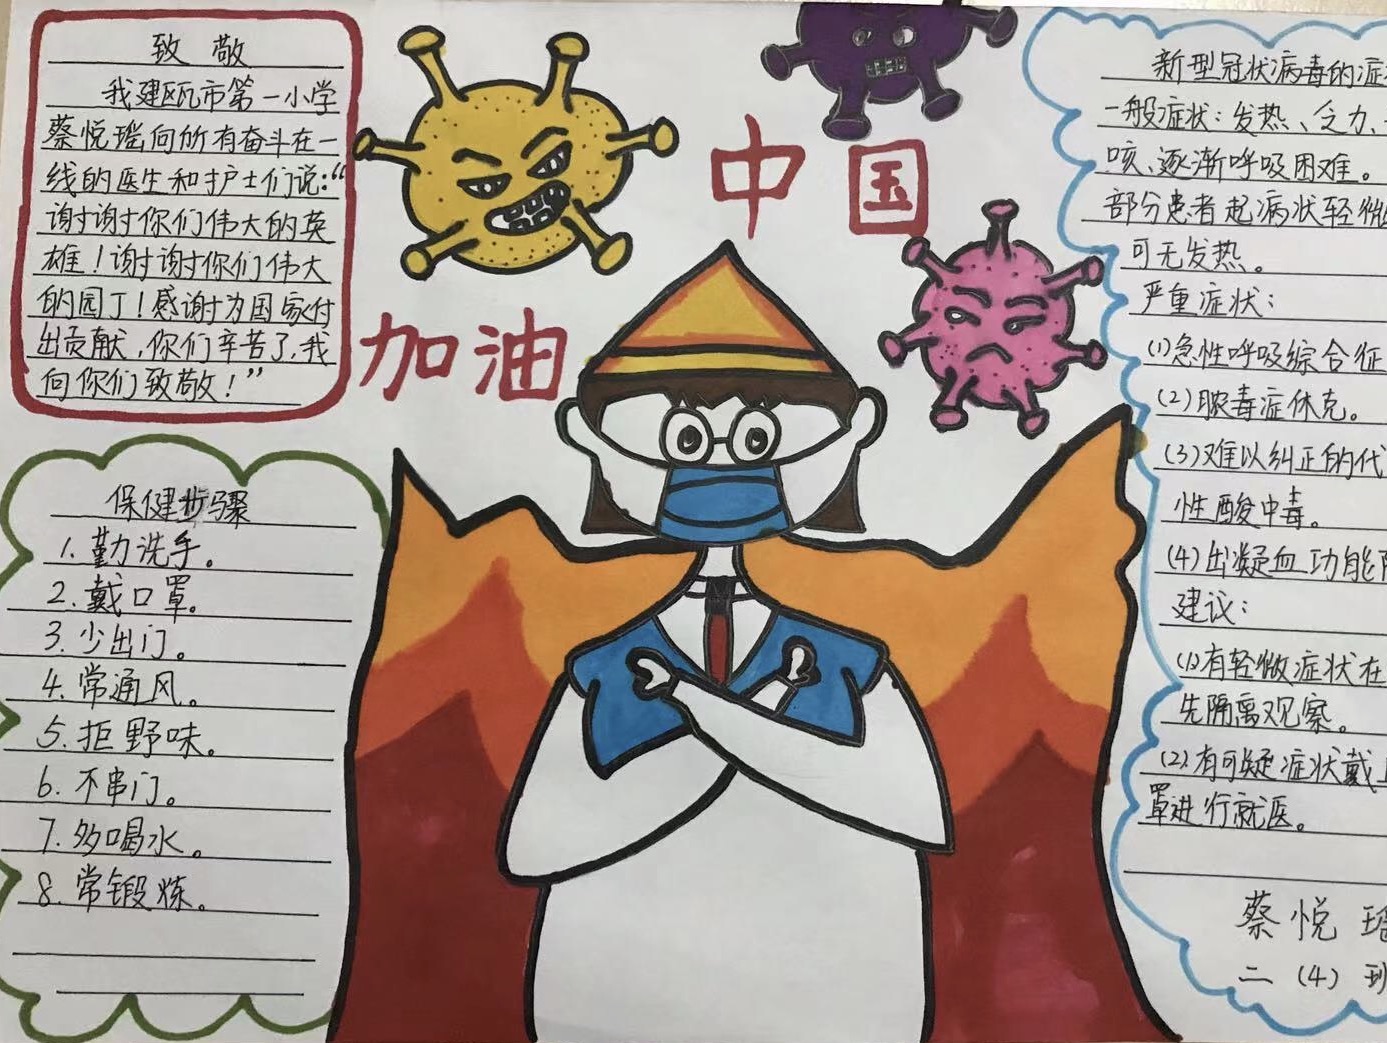 致敬
我建瓯市第一小学
蔡悦瑶向所有奋斗在一
线的医生和护士们说:“
谢谢你们伟大的英
雄!谢谢你们伟大
的园丁!感谢为国家付
出贡献,你们辛苦了,我
向你们致敬!”
中国
加油
保健步骤
1.勤洗手。
2.戴口罩。
3.少出门。
4.常通风。
5.拒野味。
6.不串门。
7.多喝水。
8.常锻炼。
新型冠状病毒的症
一般症状:发热、乏力、
咳,逐渐呼吸困难。
部分患者起病状轻微
可无发热。
严重症状:
(1)急性呼吸综合征
(2)脓毒症休克。
(3)难以纠正的代
性酸中毒。
(4)出凝血功能
建议:
(1)有轻微症状在
先隔离观察。
(2)有可疑症状戴
罩进行就医。
蔡悦瑶
二(4)班